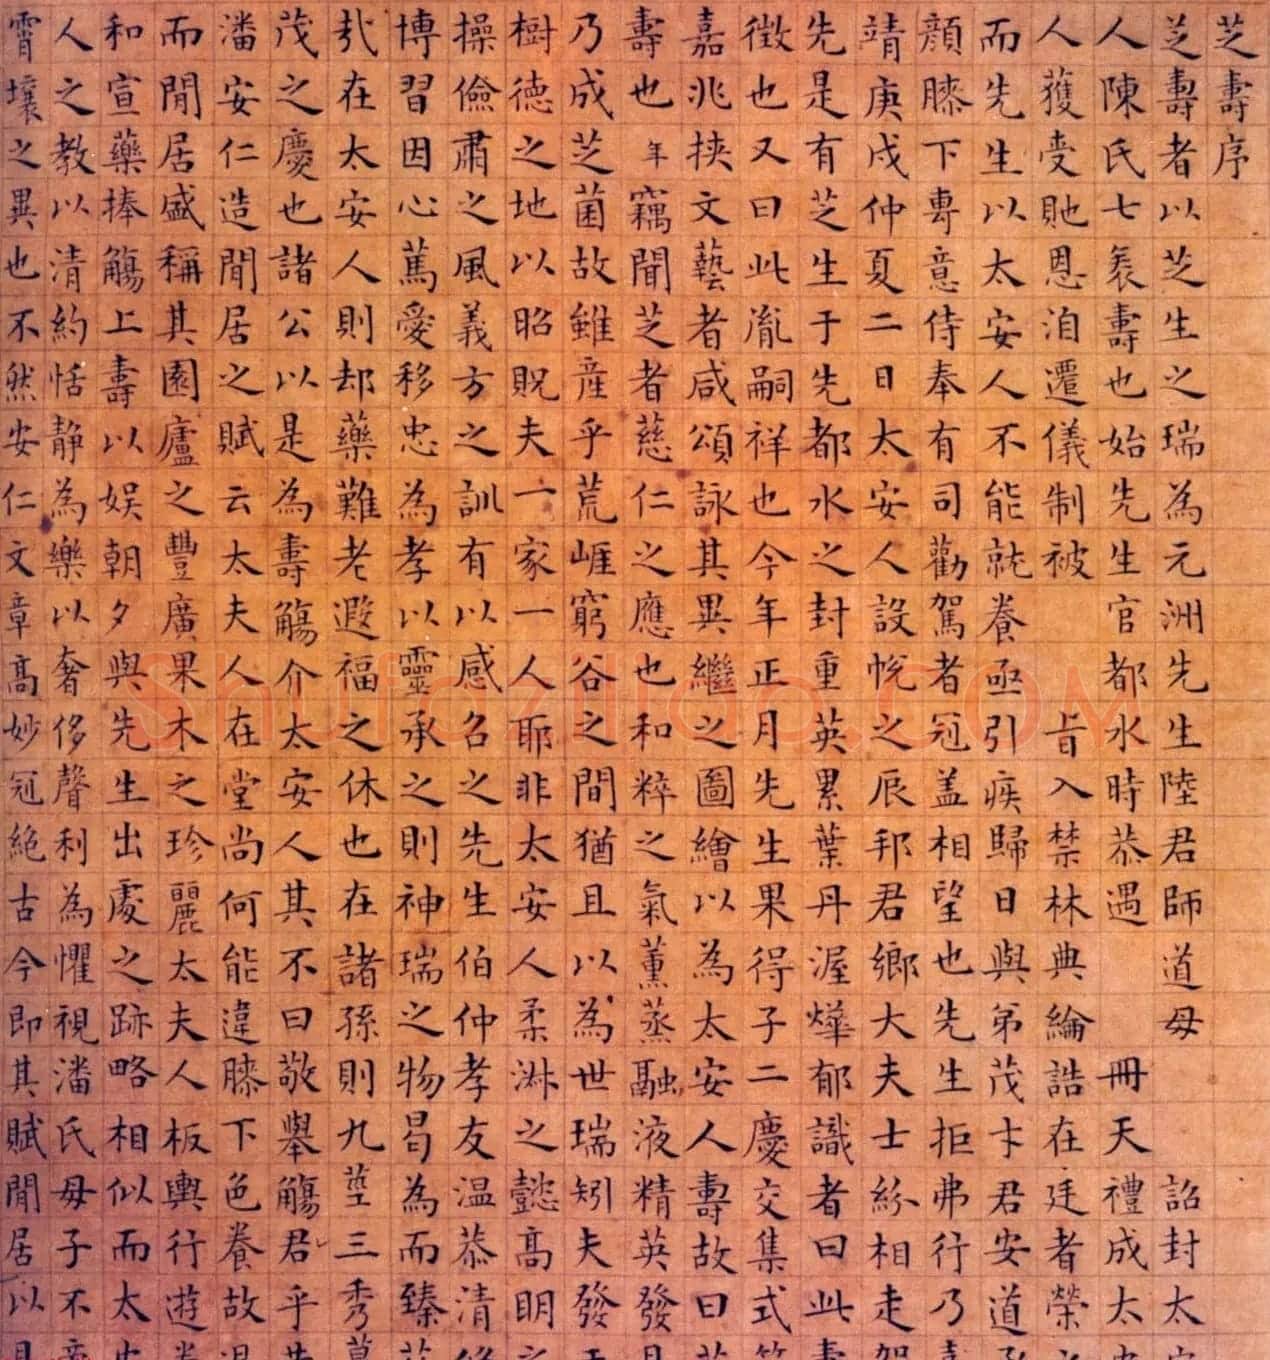 芝壽序
芝壽者以芝生之瑞為元洲先生陸君師道母詔封太
人陳氏七袠壽也始先生官都水時恭遇冊天禮成太
人獲受貤恩洎遷儀制被旨入禁林典綸誥在廷者榮
而先生以太安人不能就養亟引疾歸日與弟茂卞君安道
顔膝下專意侍奉有司勸駕者冠盖相望也先生拒弗行乃
靖庚戌仲夏二日太安人設帨之辰邦君鄉大夫士紛相走
先是有芝生于先都水之封重英累葉丹渥燁郁識者曰此
徵也又曰此胤嗣祥也今年正月先生果得子二慶交集式
嘉兆挾文藝者咸頌詠其異繼之圖繪以為太安人壽故曰
壽也年竊聞芝者慈仁之應也和粹之氣薰蒸融液精英發
乃成芝菌故雖産乎荒崕窮谷之間猶且以為世瑞矧夫發
樹德之地以昭貺夫一家一人耶非太安人柔淋之懿髙明
操儉肅之風義方之訓有以感名之先生伯仲孝友温恭清
博習因心篤愛移忠為孝以靈承之則神瑞之物曷為而臻
㢤在太安人則却藥難老遐福之休也在諸孫則九莖三秀
茂之慶也諸公以是為壽觴介太安人其不曰敬舉觴君乎
潘安仁造閒居之賦云太夫人在堂尚何能違膝下色養故
而閒居盛稱其園廬之豐廣果木之珍麗太夫人板輿行遊
和宣藥捧觴上壽以娱朝夕與先生出處之跡略相似而太
人之教以清約恬静為樂以奢侈聲利為懼視潘氏母子不
霄壤之異也不然安仁文章髙妙冠絶古今即其賦閒居以
shufaziliao.COM